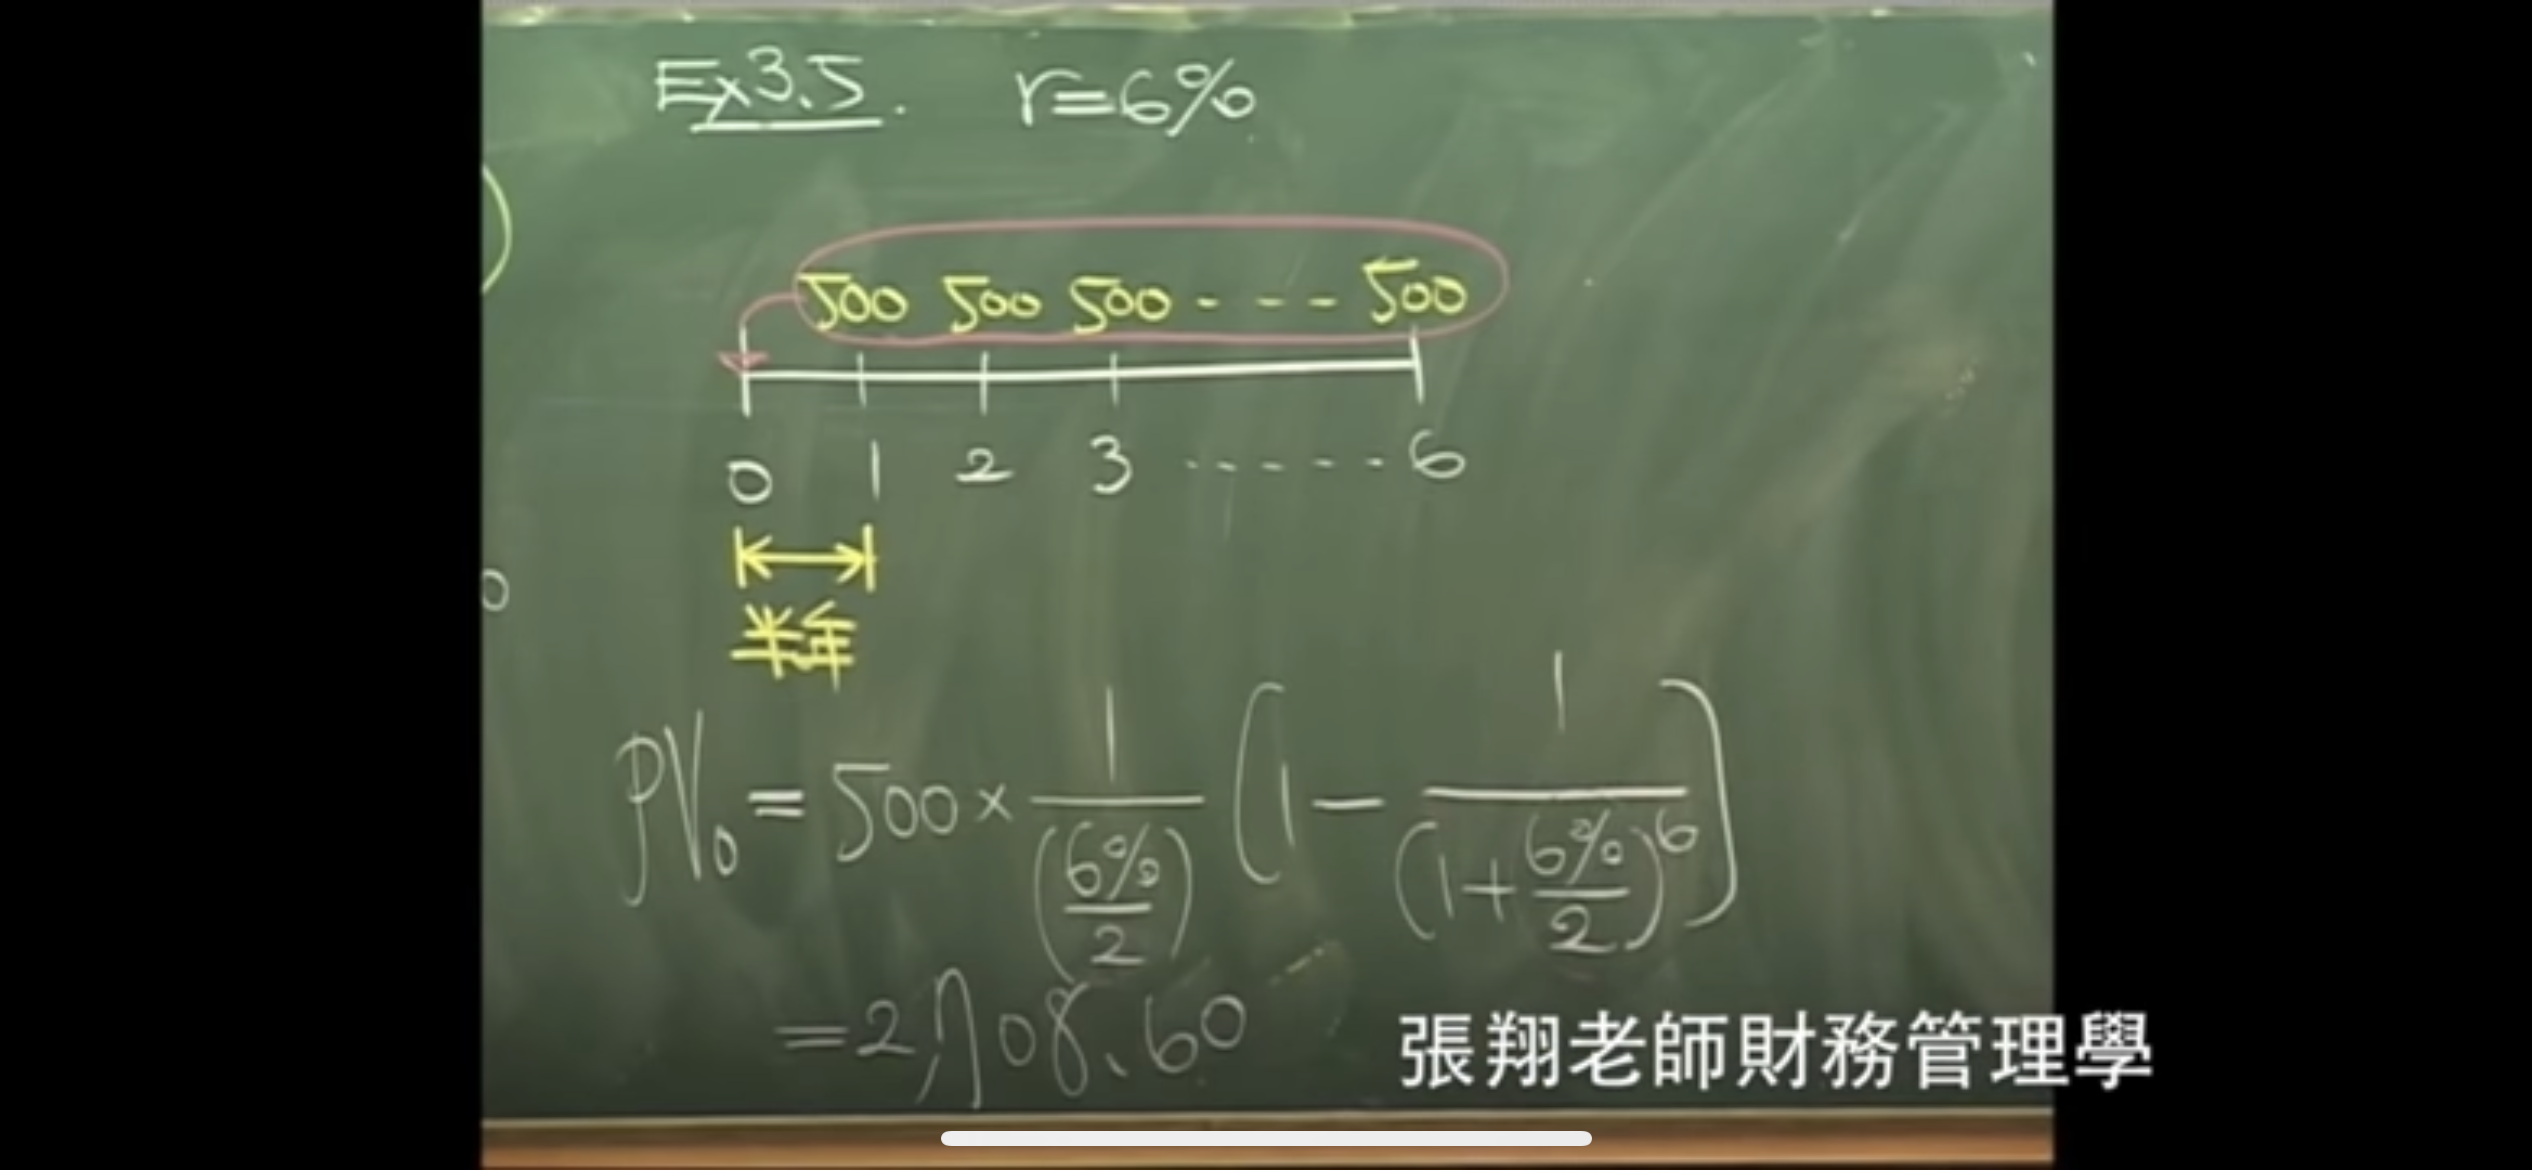 Ex3.5. r=6%
500 500 500 - - - 500
0 1 2 3 ------ 6
半年
PV₀ = 500 × 1/(6%/2) (1 - 1/(1+6%/2)^6)
= 2,708.60
張翔老師財務管理學